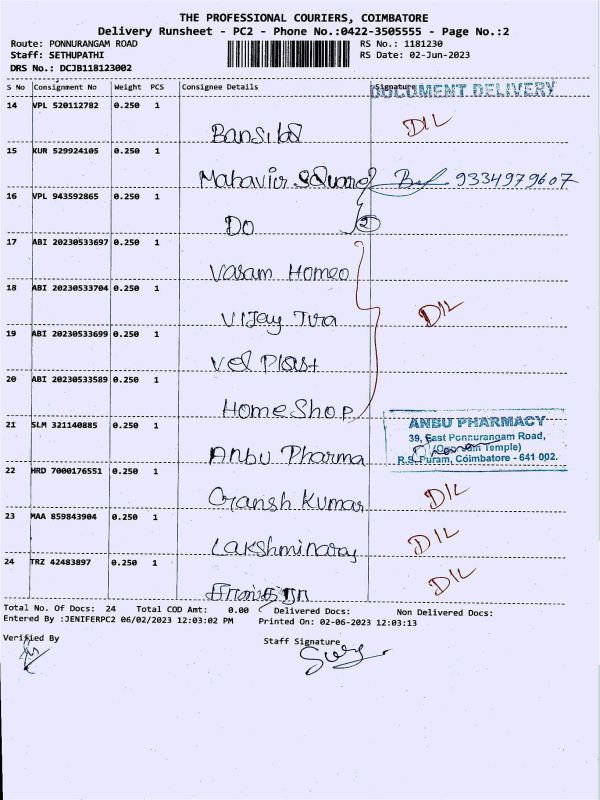 THE PROFESSIONAL COURIERS, COIMBATORE
Delivery Runsheet - PC2 - Phone No.:0422-3505555 - Page No.:2
Route: PONNURANGAM ROAD
RS No.: 1181230
Staff: SETHUPATHI
RS Date: 02-Jun-2023
DRS No.: DCJB118123002
S No Consignment No Weight PCS Consignee Details Signature
DOCUMENT DELIVERY
14 VPL 520112782 0.250 1
DIL
15 KUR 529924105 0.250 1
Mahavir 9334979607
16 VPL 943592865 0.250 1
Do 2
17 ABI 20230533697 0.250 1
Vasam Homeo
18 ABI 20230533704 0.250 1
Vijay DIL
19 ABI 20230533699 0.250 1
Vel Plast
20 ABI 20230533589 0.250 1
Home Shop
21 SLM 321140885 0.250 1
ANBU PHARMACY
39, East Ponnurangam Road,
Temple)
R.S. Puram, Coimbatore - 641 002.
Anbu Pharma
22 HRD 7000176551 0.250 1
Kumar DIL
23 MAA 859843904 0.250 1
Lakshminaray DIL
24 TRZ 42483897 0.250 1
DIL
Total No. Of Docs: 24 Total COD Amt: 0.00 Delivered Docs: Non Delivered Docs:
Entered By :JENIFERPC2 06/02/2023 12:03:02 PM Printed On: 02-06-2023 12:03:13
Verified By
Staff Signature